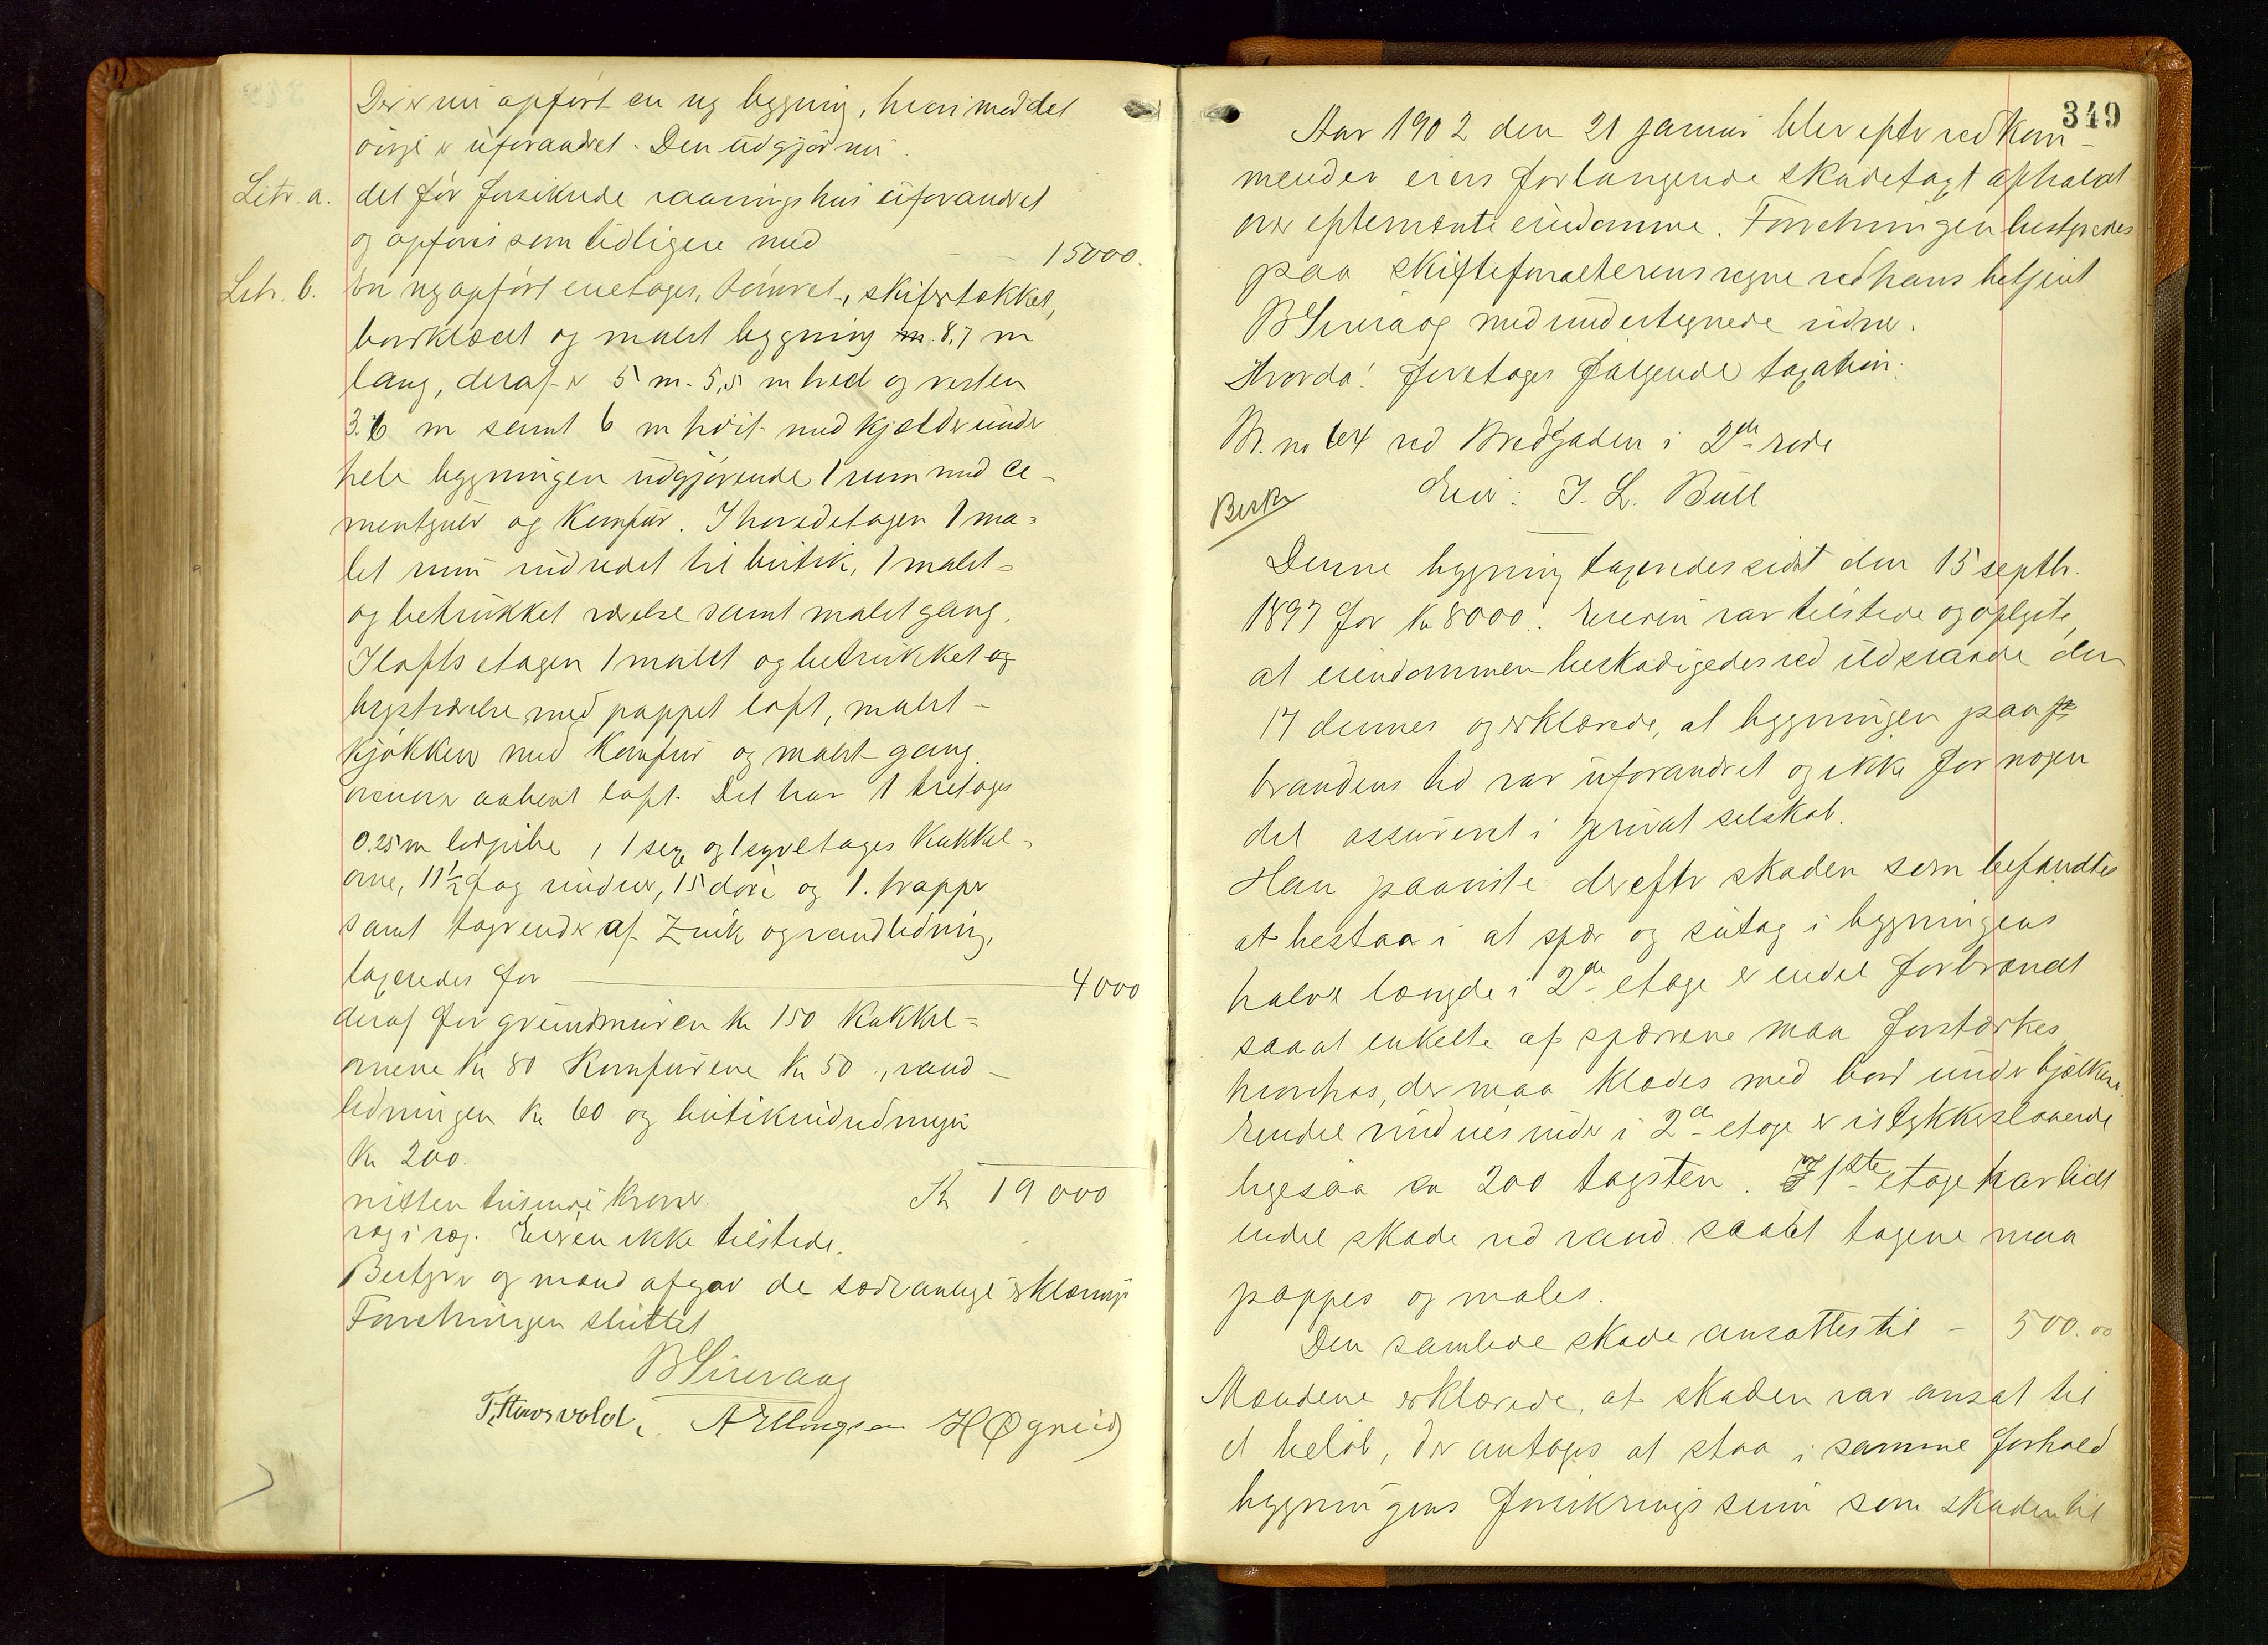 Der er nu opført en ny bygning, hvorimod det
øvrige er uforandret. Den udgjør nu
Litr. a. det før forsikrede vaaningshus uforandret
og opføres som tidligere med — 15000.
Litr. b. En nyopført enetages, tømret, skifertækket,
bordklædt og malet bygning m. 8,7 m
lang, deraf er 5 m. 5,5 m bred og resten
3.6 m samt 6 m høit med kjælder under
hele bygningen udgjørende 1 rum med ce-
mentgulv og komfur. I hovedetagen 1 ma-
let rum indredet til butik, 1 malet-
og betrukket værelse samt malet gang.
I loftsetagen 1 malet og betrukket og
bryst værelse med pappet loft, malet-
kjøkken med komfur og malet gang
ovenover aabent loft. Det har 1 tretages
0.25 m løbpibe, 1 sex og 1 syvetages kakkel-
ovne, 11 1/2 fag vinduer, 15 døre og 1. trapper
samt tagrender af Zink og vandledning,
taxeredes for — 4000
deraf for grundmuren kr 150 kakkel-
ovnene kr 80 komfurene kr 50., vand-
ledningen kr 60 og butikindredningen
kr 200.
nitten tusinde kroner. Kr 19000
væg i væg. Eieren ikke tilstede.
Bestyrer og mænd afgav de sædvanlige erklæringer
Forretningen sluttet
B Sirevaag
T. Hausvold, A Ellingsen H Øgreid
349
Aar 1902 den 21 januar blev efter vedkom-
mendes eiers forlangende skadetaxt afholdt
over eftermænte eiendomme. Forretningen bestyredes
paa skifteforvalterens vegne ved hans betjent
B Sirevaag med undertegnede vidner.
Hvorda! foretoges følgende taxation:
Br. no 64 ved Bredgaden i 2den rode
Eier: J. L. Bull
Denne bygning taxeredes sidst den 15 septbr.
1897 for kr 8000. Eieren var tilstede og oplyste,
at eiendommen beskadigedes ved ildsvaade den
17 dennes og erklærede, at bygningen paa
brandens tid var uforandret og ikke for nogen
del assureret i privat selskab.
Han paaviste derefter skaden som befandtes
at bestaa i at spær og sutag i bygningens
halve længde i 2den etage er endel forbrændt
saa at enkelte af spærrene maa forstærkes
hvorhos, der maa klædes med bord under bjælkene.
Endel vinduesruder i 2den etage er istykkerslaaede
ligesaa ca 200 tagsten. I 1ste etage har lidt
endel skade ved vand saa at tagene maa
pappes og males.
Den samlede skade ansattes til — 500.00
Mændene erklærede, at skaden var ansat til
et beløb, der antages at staa i samme forhold
bygningens forsikringssum som skaden til